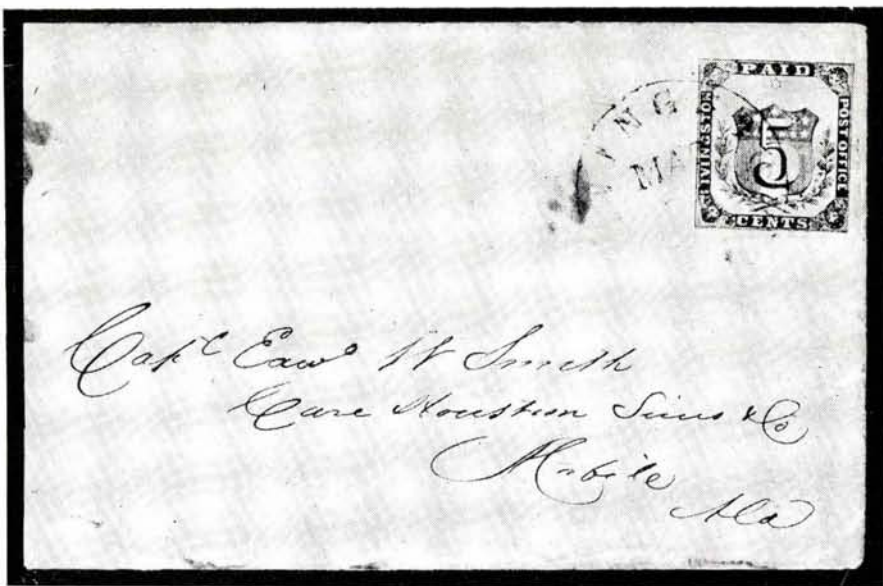 PAID
LIVINGSTON
POST OFFICE
5
CENTS
INGS
MA
Capt Edwd W Smith
Care Houston Sims & Co
Mobile
Ala